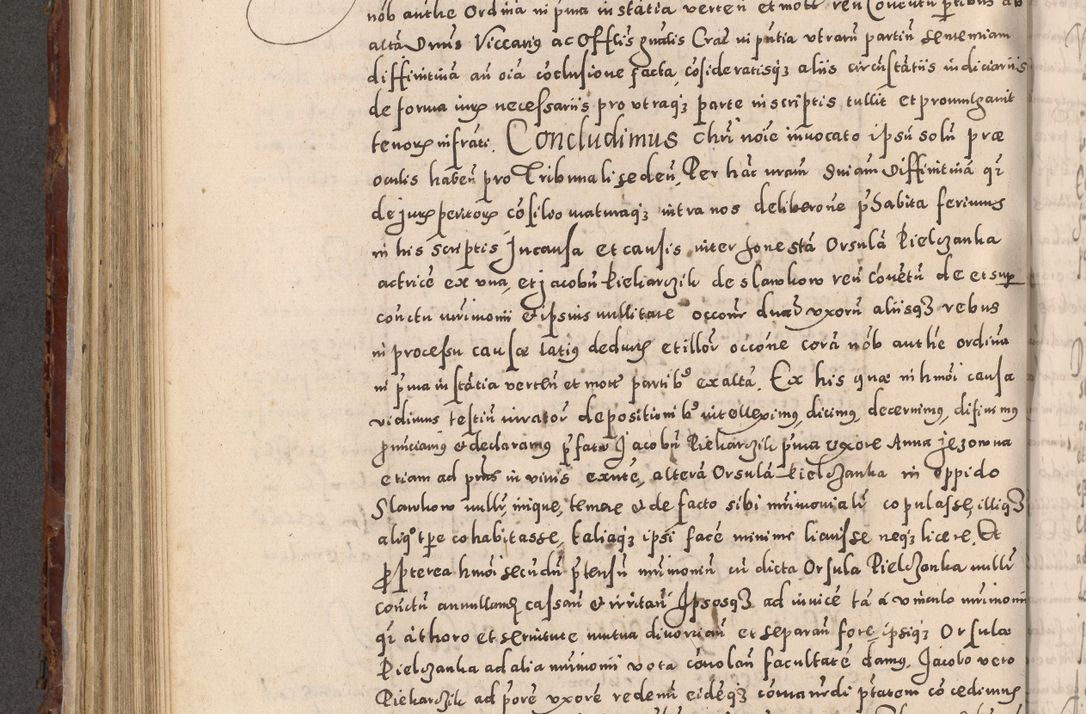 nob authe Ordina in prima instantia verten et mott reu Conventu partibus ab
altā Dnus Viccarius ac Offlis gnalis Crac in pntia vtrarū partiū sententiam
diffinitiuā an oia cōclusione facta, cōsideratisqz aliis circūstātiis iudiciariis
de forma iurz necessariis pro vtraqz parte in scriptis tullit et promulgauit
tenorz infrāti. Concludimus Chrī noīe inuocato ipsū solū præ
oculis habeñ pro Tribunali sedeñ, Per hāc nram sniam Diffinitiuā qī
de jurz peritorz cōsilio maturaqz intra nos deliberone prhabita ferimus
in his scriptis In causa et causis inter honestā Orsulā Kielczanka
actricē ex vna, et jacobū kiekarczik de slawkow reū cōuētū de et super
conctu mrimonii et ipsius nullitate occone duarū vxorū aliisqz rebus
in processu causæ latius deductis et illor occōne corā nōb authe ordina
in prima instātia verteñ et mott partibq ex altā. Ex his quæ in hmōi causa
vidimus testiū iurator depositionibq intelleximus, dicimus, decernimus, difinimus
pronunciamus et declaramus prfatū Jacobū Kiekarczik prima vxore Anna jezowna
etiam ad prns in viuis exnte, alterā Orsulā kielczanka in oppido
Slawkow nullr, inique, temere et de facto sibi mrimonialr copulasse, illiqz
aliqo tpe cohabitasse, taliaqz ipsi facē minime licuisse neqz licere. Et
propterea hmōi secundū prtensū mrimoniū cū dicta Orsula Kielczanka nullr
conctū annullamus cassam et irritari Ipsosqz ad inuicē tā á vinculo mrimonii
qr á thoro et seruitute mutua diuorciari et separari fore, ipsiqz Orsulæ
Kielczanka ad alia mrimonii vota cōuolan facultatē damus, Jacobo vero
Kiekarczik ad priorē vxorē redeuñ eidēqz cōmanendi prtatem cōcedimus